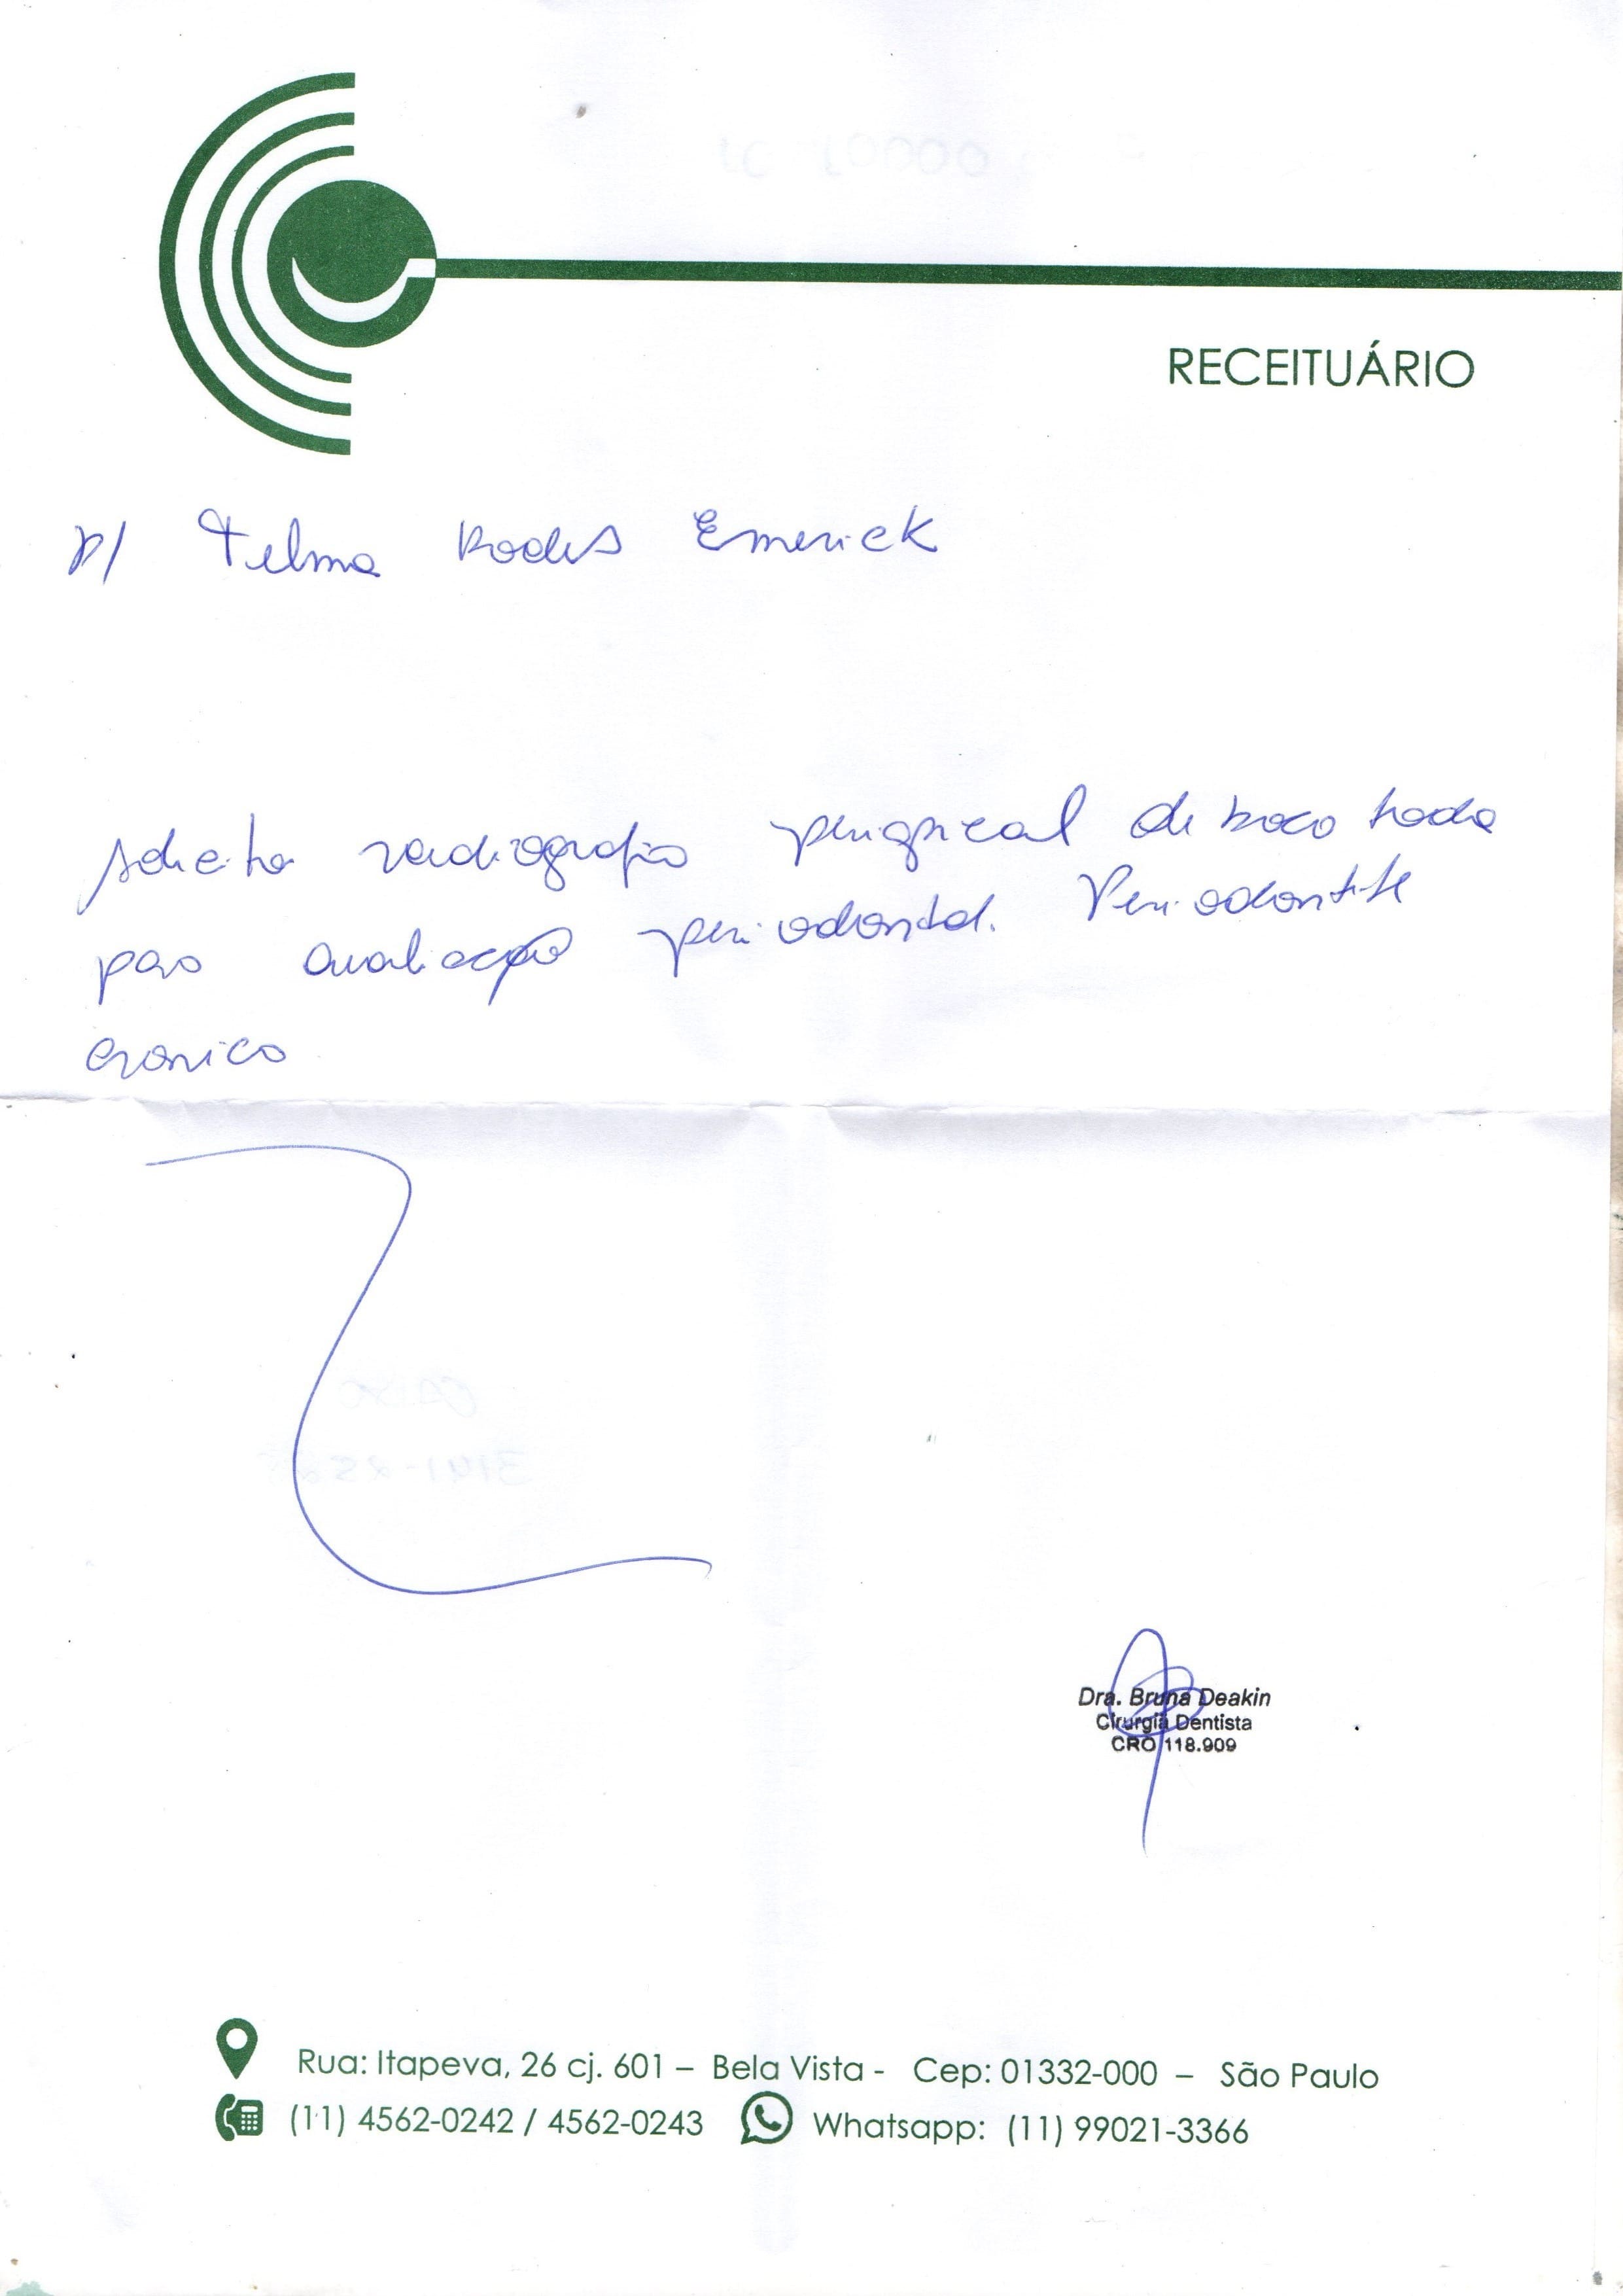 RECEITUÁRIO
p/ Telma Emerick
Solicito radiografia periapical de boca toda
para avaliação periodontal. Periodontite
cronica
Dra. Bruna Deakin
Cirurgiã Dentista
CRO 118.909
Rua: Itapeva, 26 cj. 601 – Bela Vista - Cep: 01332-000 – São Paulo
(11) 4562-0242 / 4562-0243 Whatsapp: (11) 99021-3366